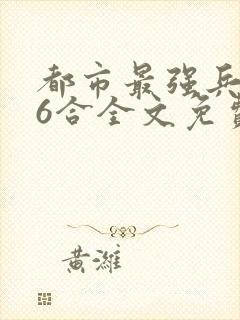 都市最强兵
6合全文免费
黄潍